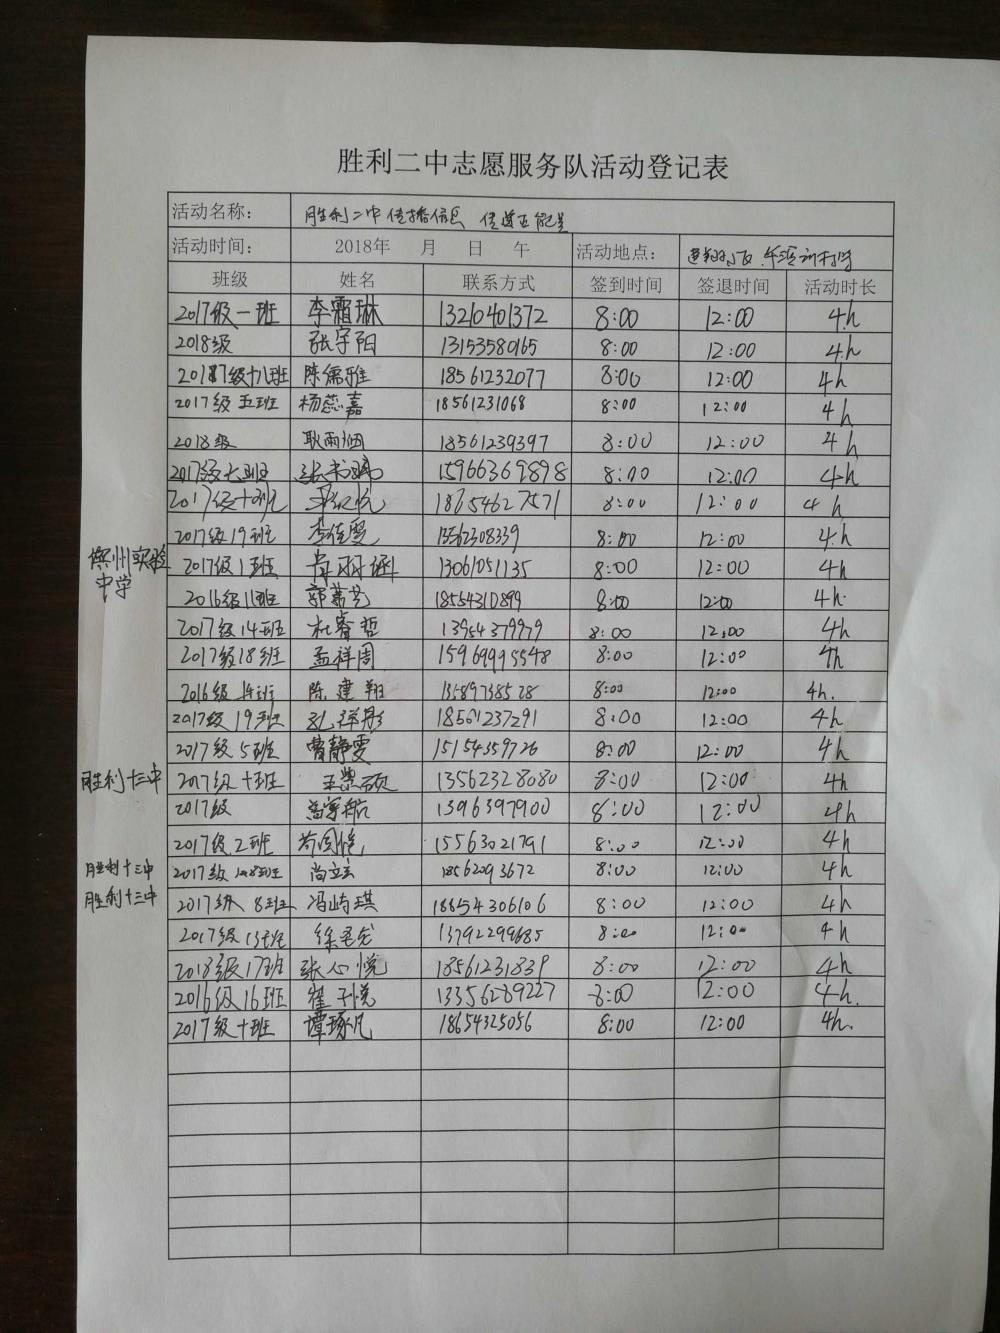 胜利二中志愿服务队活动登记表
活动名称： 胜利二中传播信息 传递正能量
活动时间： 2018年 月 日 午 活动地点：
班级 姓名 联系方式 签到时间 签退时间 活动时长
2017级一班 李霜琳 13210401372 8:00 12:00 4h
2018级 张宇阳 13153580165 8:00 12:00 4h
2017级十八班 陈儒雅 18561232077 8:00 12:00 4h
2017级五班 杨蕊嘉 18561231068 8:00 12:00 4h
2018级 耿雨 18561239397 8:00 12:00 4h
2017级七班 张 15966369898 8:00 12:00 4h
2017级十班 18654627571 8:00 12:00 4h
2017级19班 李佳雯 13562308339 8:00 12:00 4h
滨州实验
中学
2017级1班 肖雨涵 13061051135 8:00 12:00 4h
2016级11班 郭 18554310899 8:00 12:00 4h
2017级14班 杜睿哲 13954379979 8:00 12:00 4h
2017级18班 孟祥周 15969995548 8:00 12:00 4h
2016级14班 陈建翔 13589738528 8:00 12:00 4h.
2017级19班 孔祥彤 18561237291 8:00 12:00 4h
2017级5班 曹静雯 15154359726 8:00 12:00 4h
胜利十三中 2017级十班 王 硕 13562328080 8:00 12:00 4h
2017级 航 1396397900 8:00 12:00 4h
2017级2班 15563021791 8:00 12:00 4h
胜利十三中 2017级 班 尚 18562093672 8:00 12:00 4h
胜利十三中 2017级8班 冯崎琪 18654306106 8:00 12:00 4h
2017级13班 徐 13792299685 8:00 12:00 4h
2018级17班 张心悦 18561231839 8:00 12:00 4h
2016级16班 崔子悦 13356289227 8:00 12:00 4h.
2017级十班 谭琢凡 18654325056 8:00 12:00 4h.